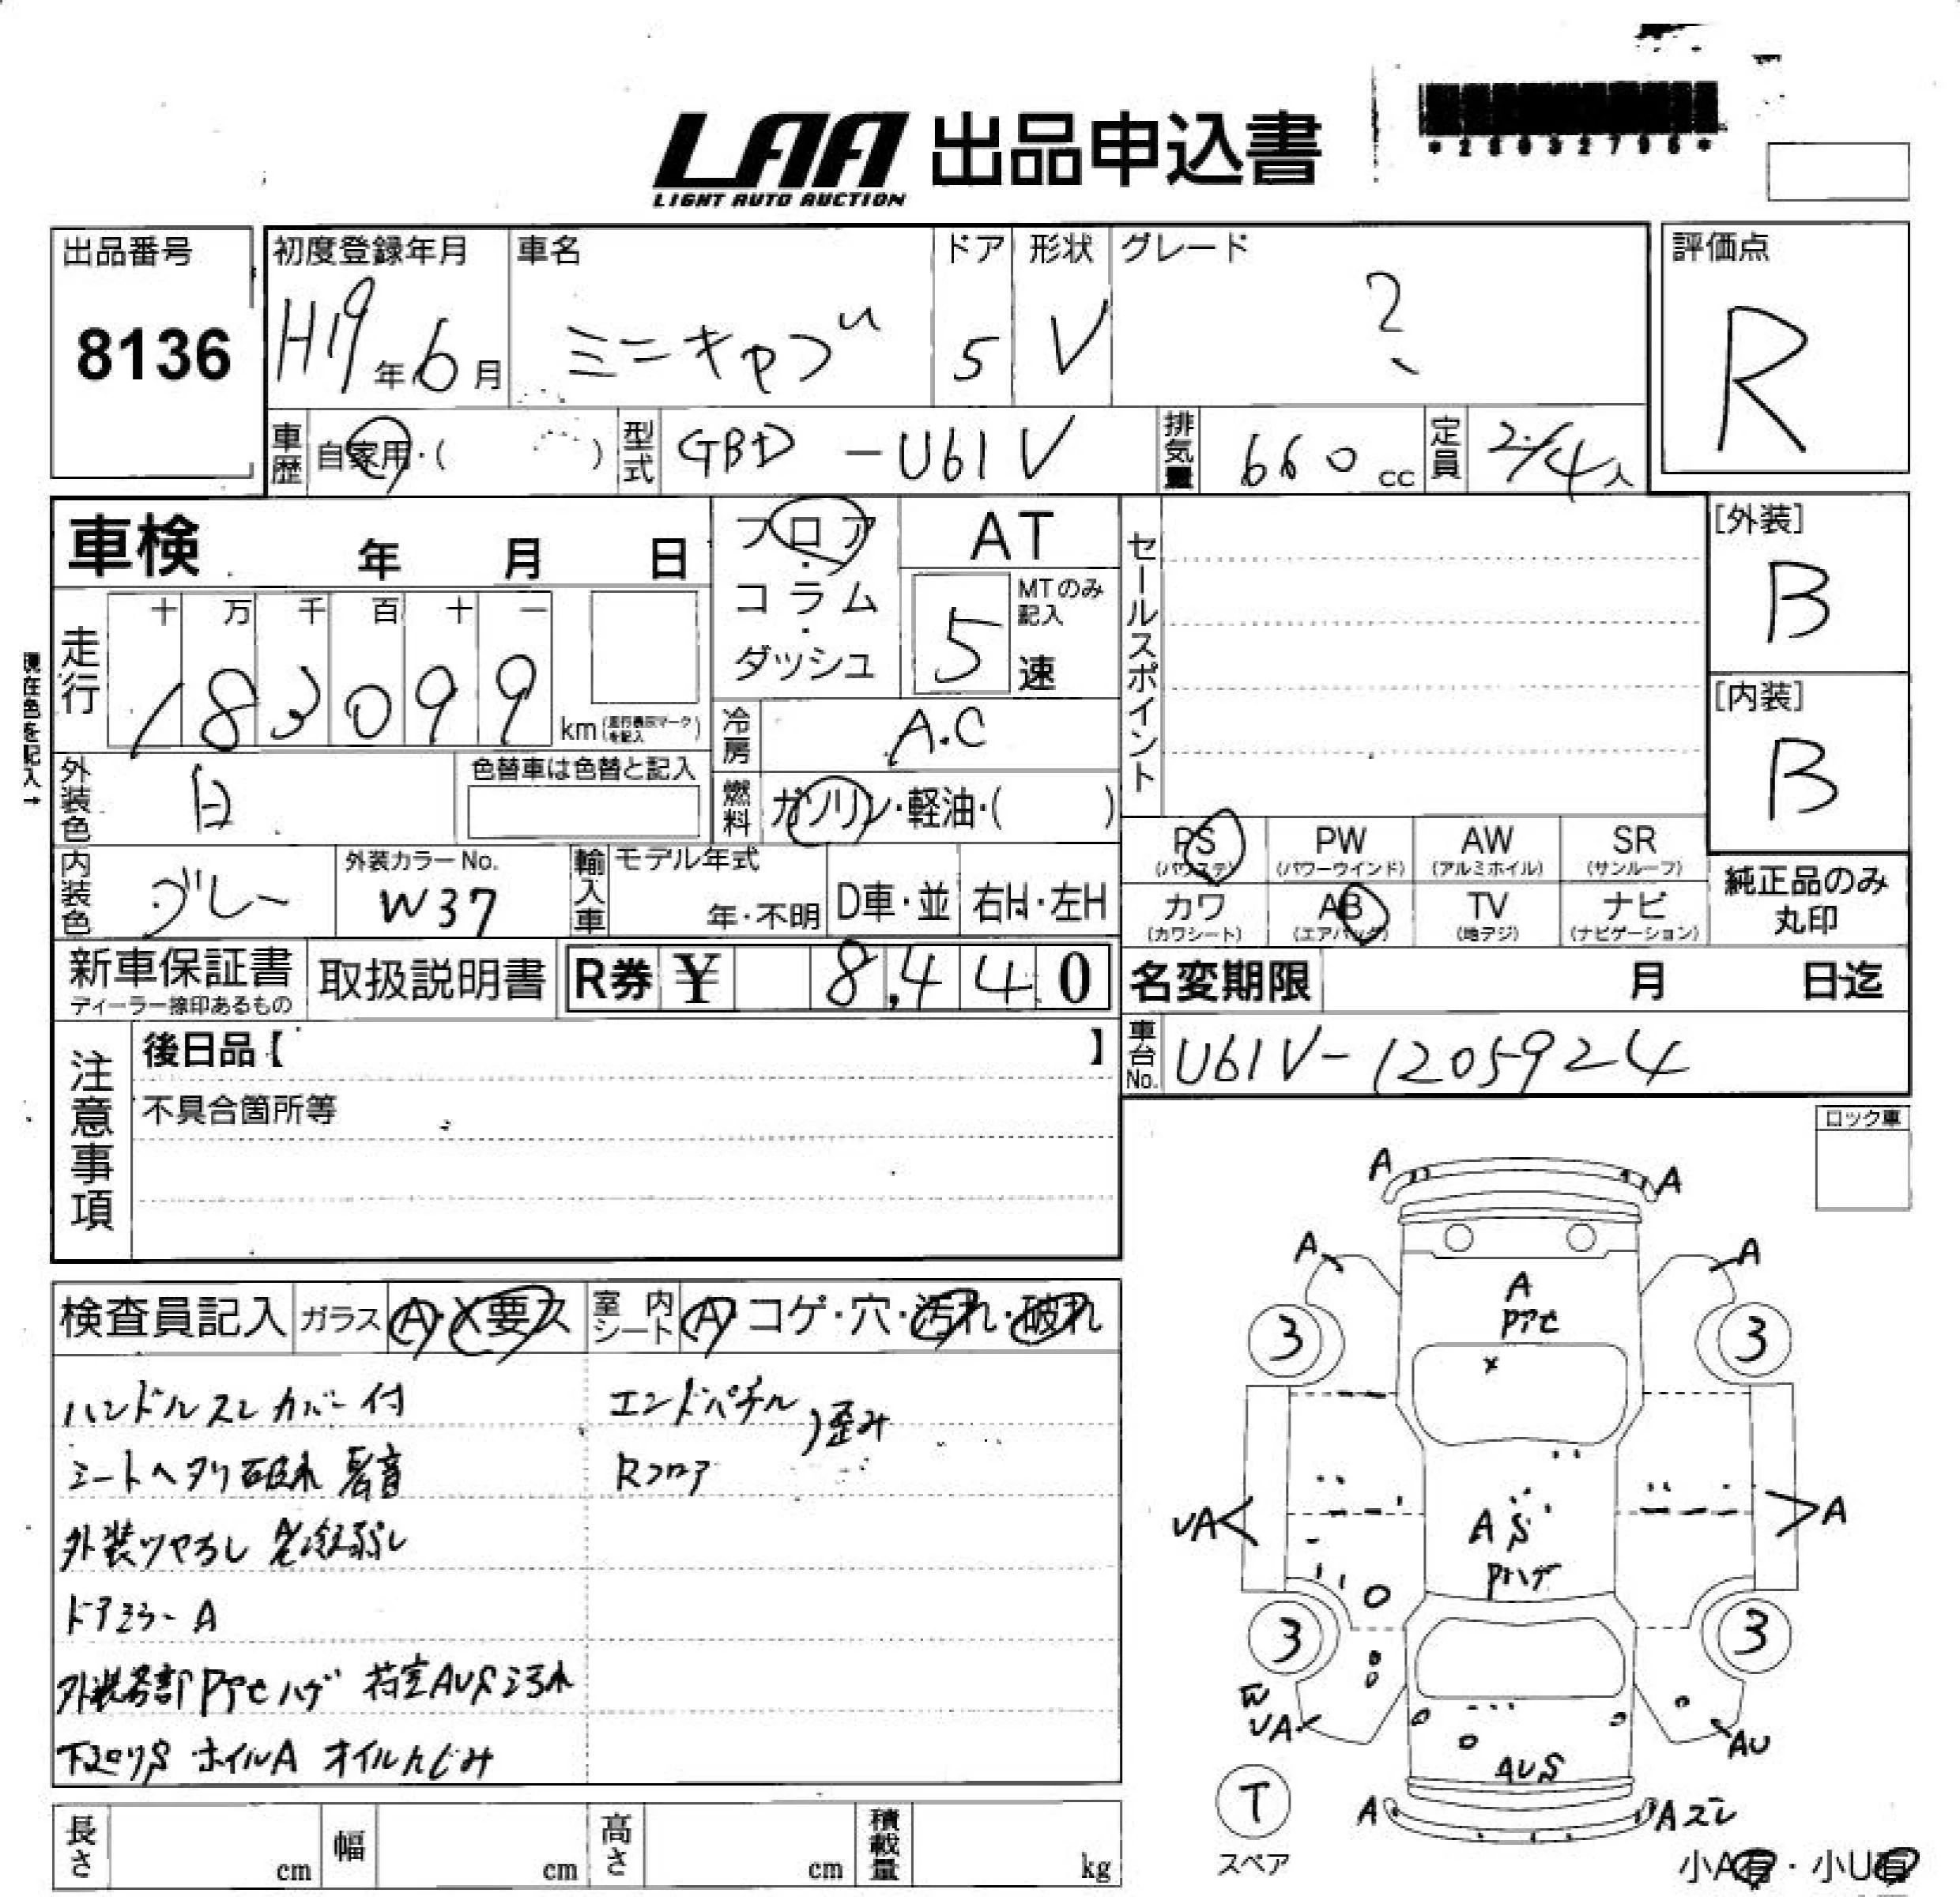 LAA 出品申込書
LIGHT AUTO AUCTION
出品番号
8136
初度登録年月
H19年6月
車名
ミニキャブ
ドア
5
形状
V
グレード
?
評価点
R
車歴 自家用・( )
型式 GBD-U61V
排気量 660cc
定員 2/4人
車検 年 月 日
フロア・コラム・ダッシュ
AT
MTのみ記入
5速
セールスポイント
[外装]
B
[内装]
B
現在色を記入→
走行
十 万 千 百 十 一
183099 km(走行表示マークを記入)
冷房 A.C
外装色 白
色替車は色替と記入
燃料 ガソリン・軽油・( )
PS (パワステ)
PW (パワーウインド)
AW (アルミホイル)
SR (サンルーフ)
内装色 グレー
外装カラーNo.
W37
輸入車 モデル年式
年・不明
D車・並
右H・左H
カワ (カワシート)
AB (エアバッグ)
TV (地デジ)
ナビ (ナビゲーション)
純正品のみ丸印
新車保証書
ディーラー捺印あるもの
取扱説明書
R券 ¥ 8,440
名変期限 月 日迄
車台No. U61V-1205924
注意事項
後日品【 】
不具合箇所等
ロック車
検査員記入 ガラス A・X要ス
室内シート A・コゲ・穴・汚れ・破れ
ハンドルスレ カバー付
シートヘタリ破れ 異音
外装ツヤなし
ドアミラーA
外装各部Pアセハゲ 荷室AUS汚れ
下廻りS ホイルA オイルにじみ
エンドパネル
Rフロア
歪み
A A
A A
A
Pアセ
X
3 3
UA A
A S
Pハゲ
3 3
UA AU
AUS
A Aズレ
T
スペア
小A有・小U有
長さ cm
幅 cm
高さ cm
積載量 kg